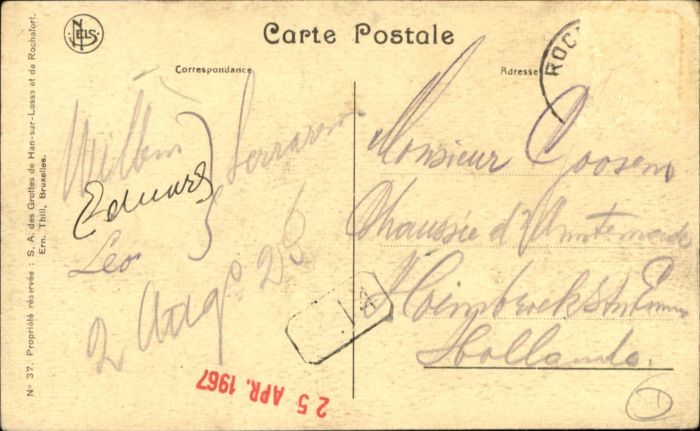 NELS
Carte Postale
Correspondance
Adresse
ROC
Willem
Eduard
Leo
Serrarens
2 Aug° 26
Monsieur Goosens
Chaussée d'
Hollande.
25 APR. 1967
N° 37. Propriété réservée : S. A. des Grottes de Han-sur-Lesse et de Rochefort.
Ern. Thill, Bruxelles.